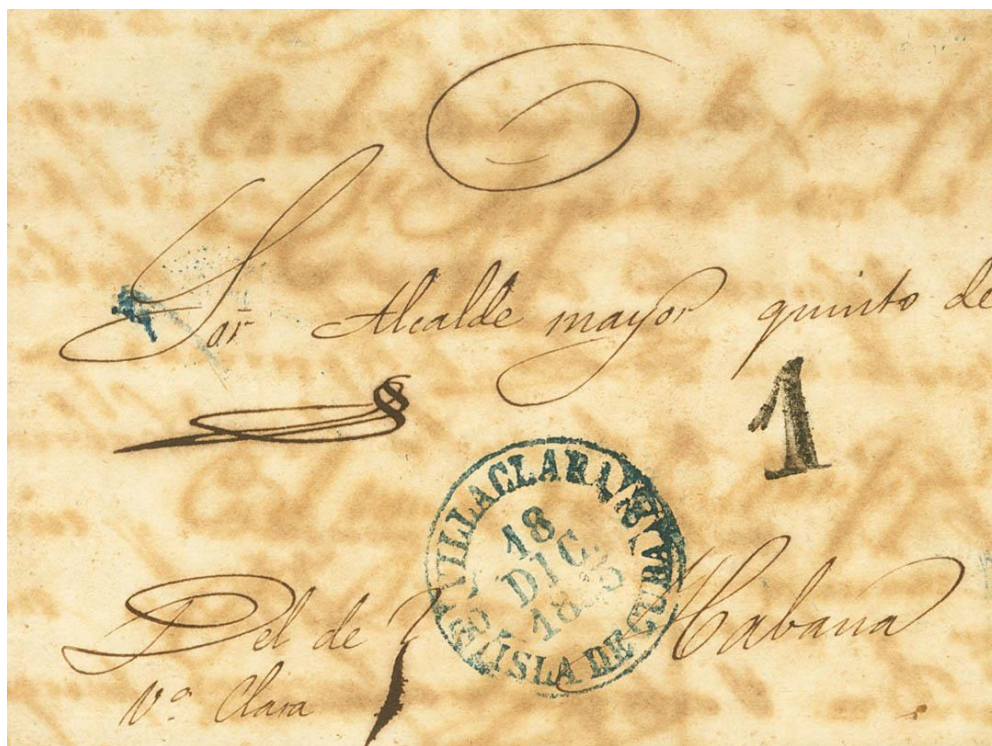 Sor Alcalde mayor quinto de
1
VILLACLARA
18
DIC
ISLA DE CUBA
Del de Habana
Va. Clara